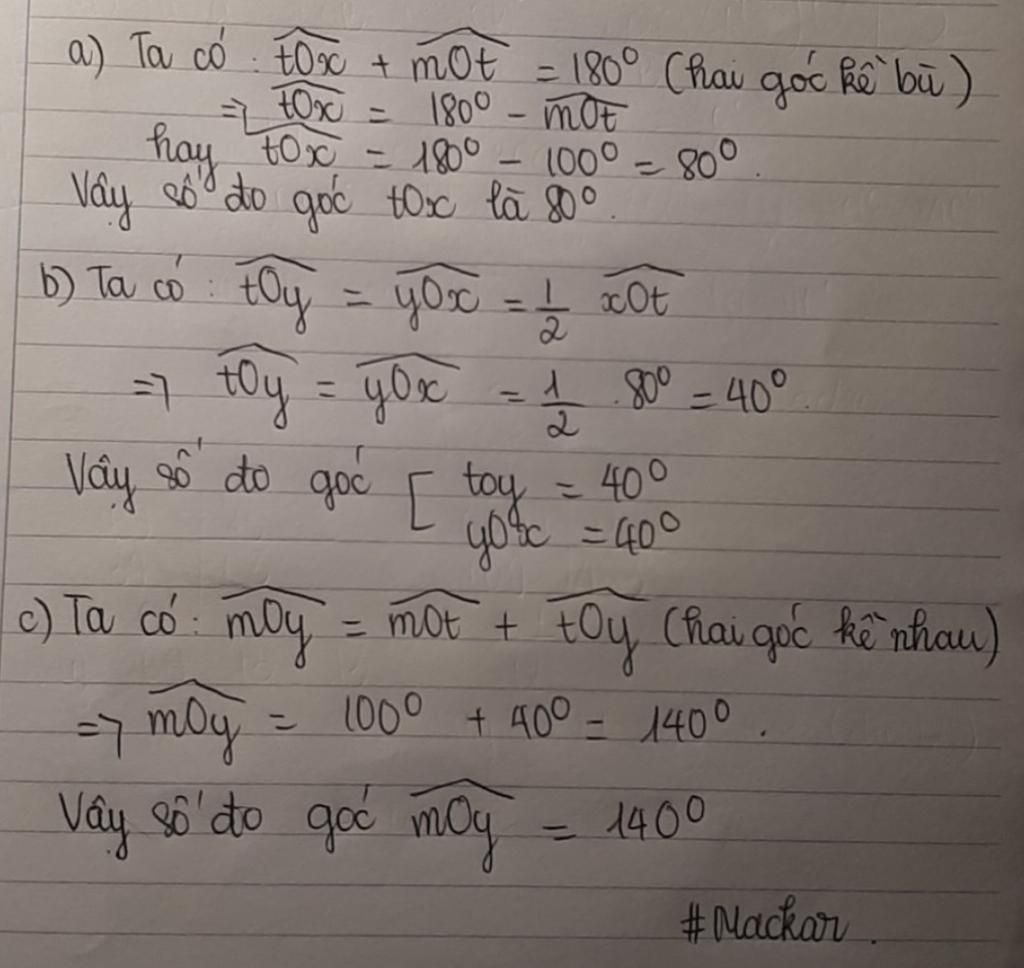 a) Ta có : tOx + mOt = 180° (hai góc kề bù)
=> tOx = 180° - mOt
hay tOx = 180° - 100° = 80°.
Vậy số đo góc tOx là 80°.
b) Ta có : tOy = yOx = 1/2 xOt
=> tOy = yOx = 1/2 . 80° = 40°.
Vậy số đo góc [ toy = 40°
yOx = 40°
c) Ta có : mOy = mOt + tOy (hai góc kề nhau)
=> mOy = 100° + 40° = 140°.
Vậy số đo góc mOy = 140°
#Mackar.